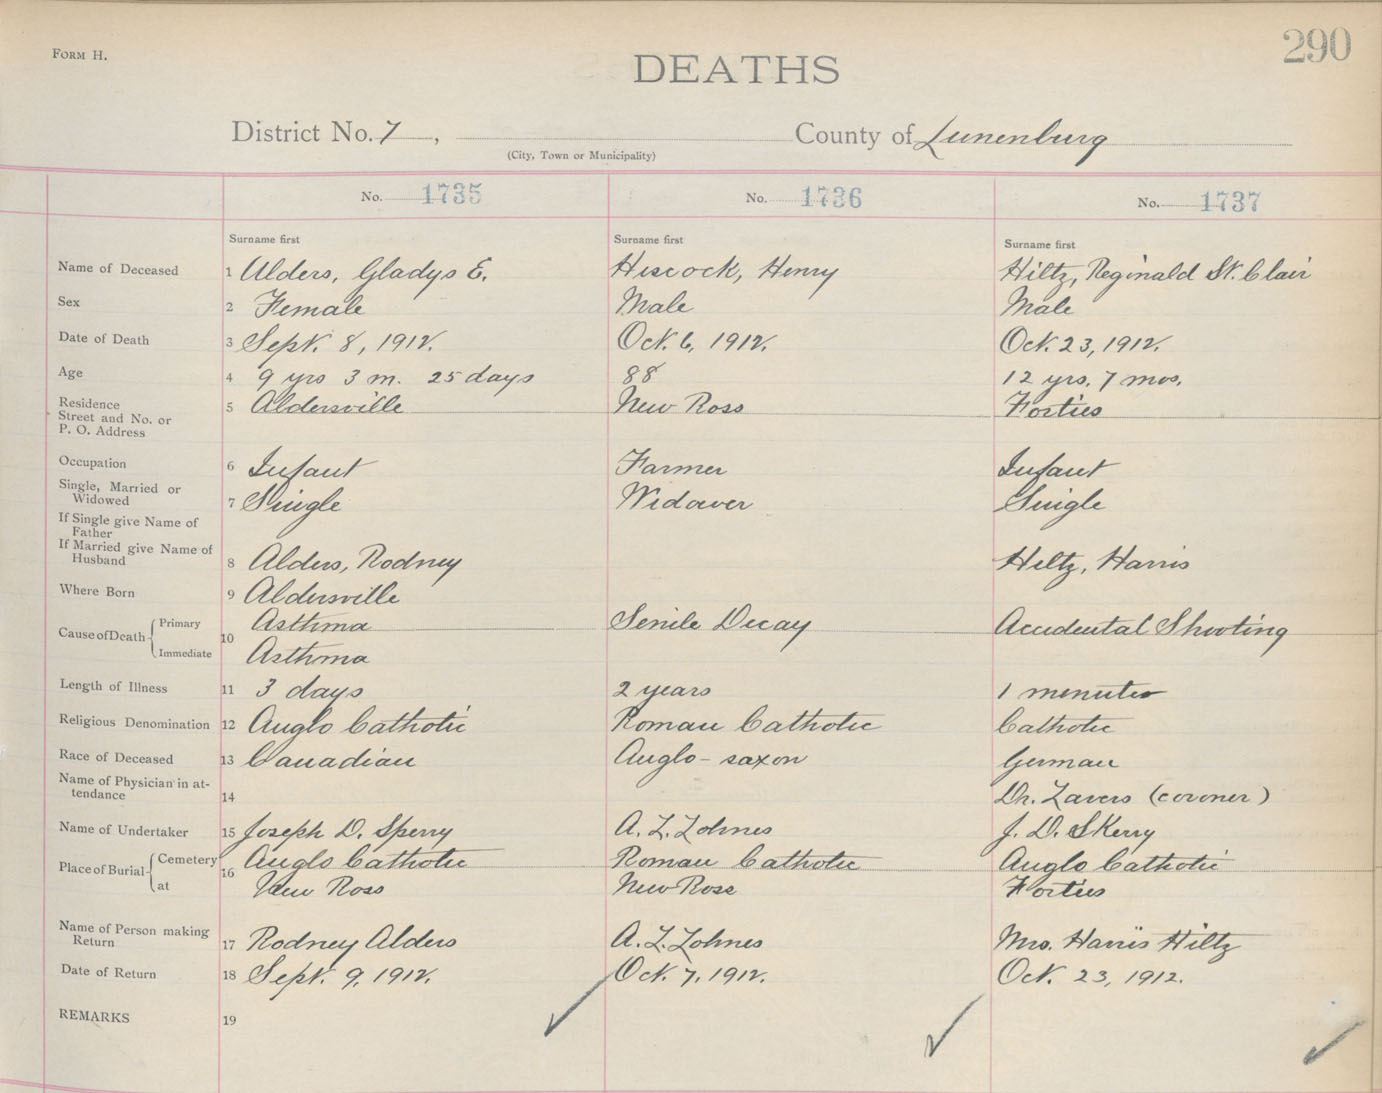 FORM H.
290
DEATHS
District No. 7, County of Lunenburg
(City, Town or Municipality)
No. 1735 No. 1736 No. 1737
Surname first Surname first Surname first
Name of Deceased 1 Alders, Gladys E. Hiscock, Henry Hiltz, Reginald St. Clair
Sex 2 Female Male Male
Date of Death 3 Sept. 8, 1912. Oct. 6, 1912. Oct. 23, 1912.
Age 4 9 yrs 3 m. 25 days 88 12 yrs. 7 mos.
Residence
Street and No. or 5 Aldersville New Ross Forties
P. O. Address
Occupation 6 Infant Farmer Infant
Single, Married or
Widowed 7 Single Widower Single
If Single give Name of
Father
If Married give Name of
Husband 8 Alders, Rodney Hiltz, Harris
Where Born 9 Aldersville
Cause of Death Primary 10 Asthma Senile Decay Accidental Shooting
Immediate Asthma
Length of Illness 11 3 days 2 years 1 minute
Religious Denomination 12 Anglo Catholic Roman Catholic Catholic
Race of Deceased 13 Canadian Anglo-saxon German
Name of Physician in at-
tendance 14 Dr. (coroner)
Name of Undertaker 15 Joseph D. Sperry A. Z. Zohnes J. D. Skerry
Place of Burial Cemetery 16 Anglo Catholic Roman Catholic Anglo Catholic
at New Ross New Ross Forties
Name of Person making
Return 17 Rodney Alders A. Z. Zohnes Mrs. Harris Hiltz
Date of Return 18 Sept. 9, 1912. Oct. 7, 1912. Oct. 23, 1912.
REMARKS 19